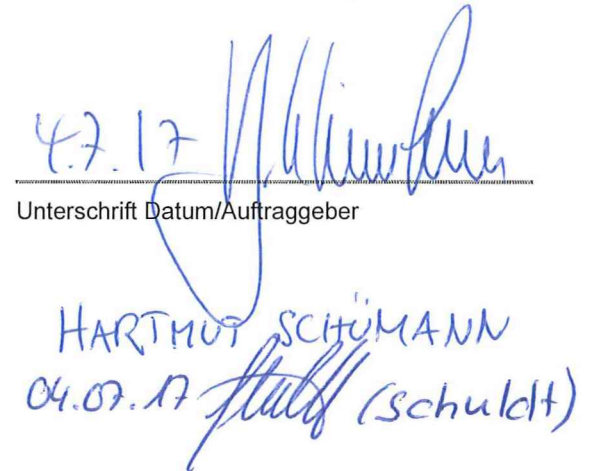 4.7.17
Unterschrift Datum/Auftraggeber
HARTMUT SCHÜMANN
04.07.17 (Schuldt)